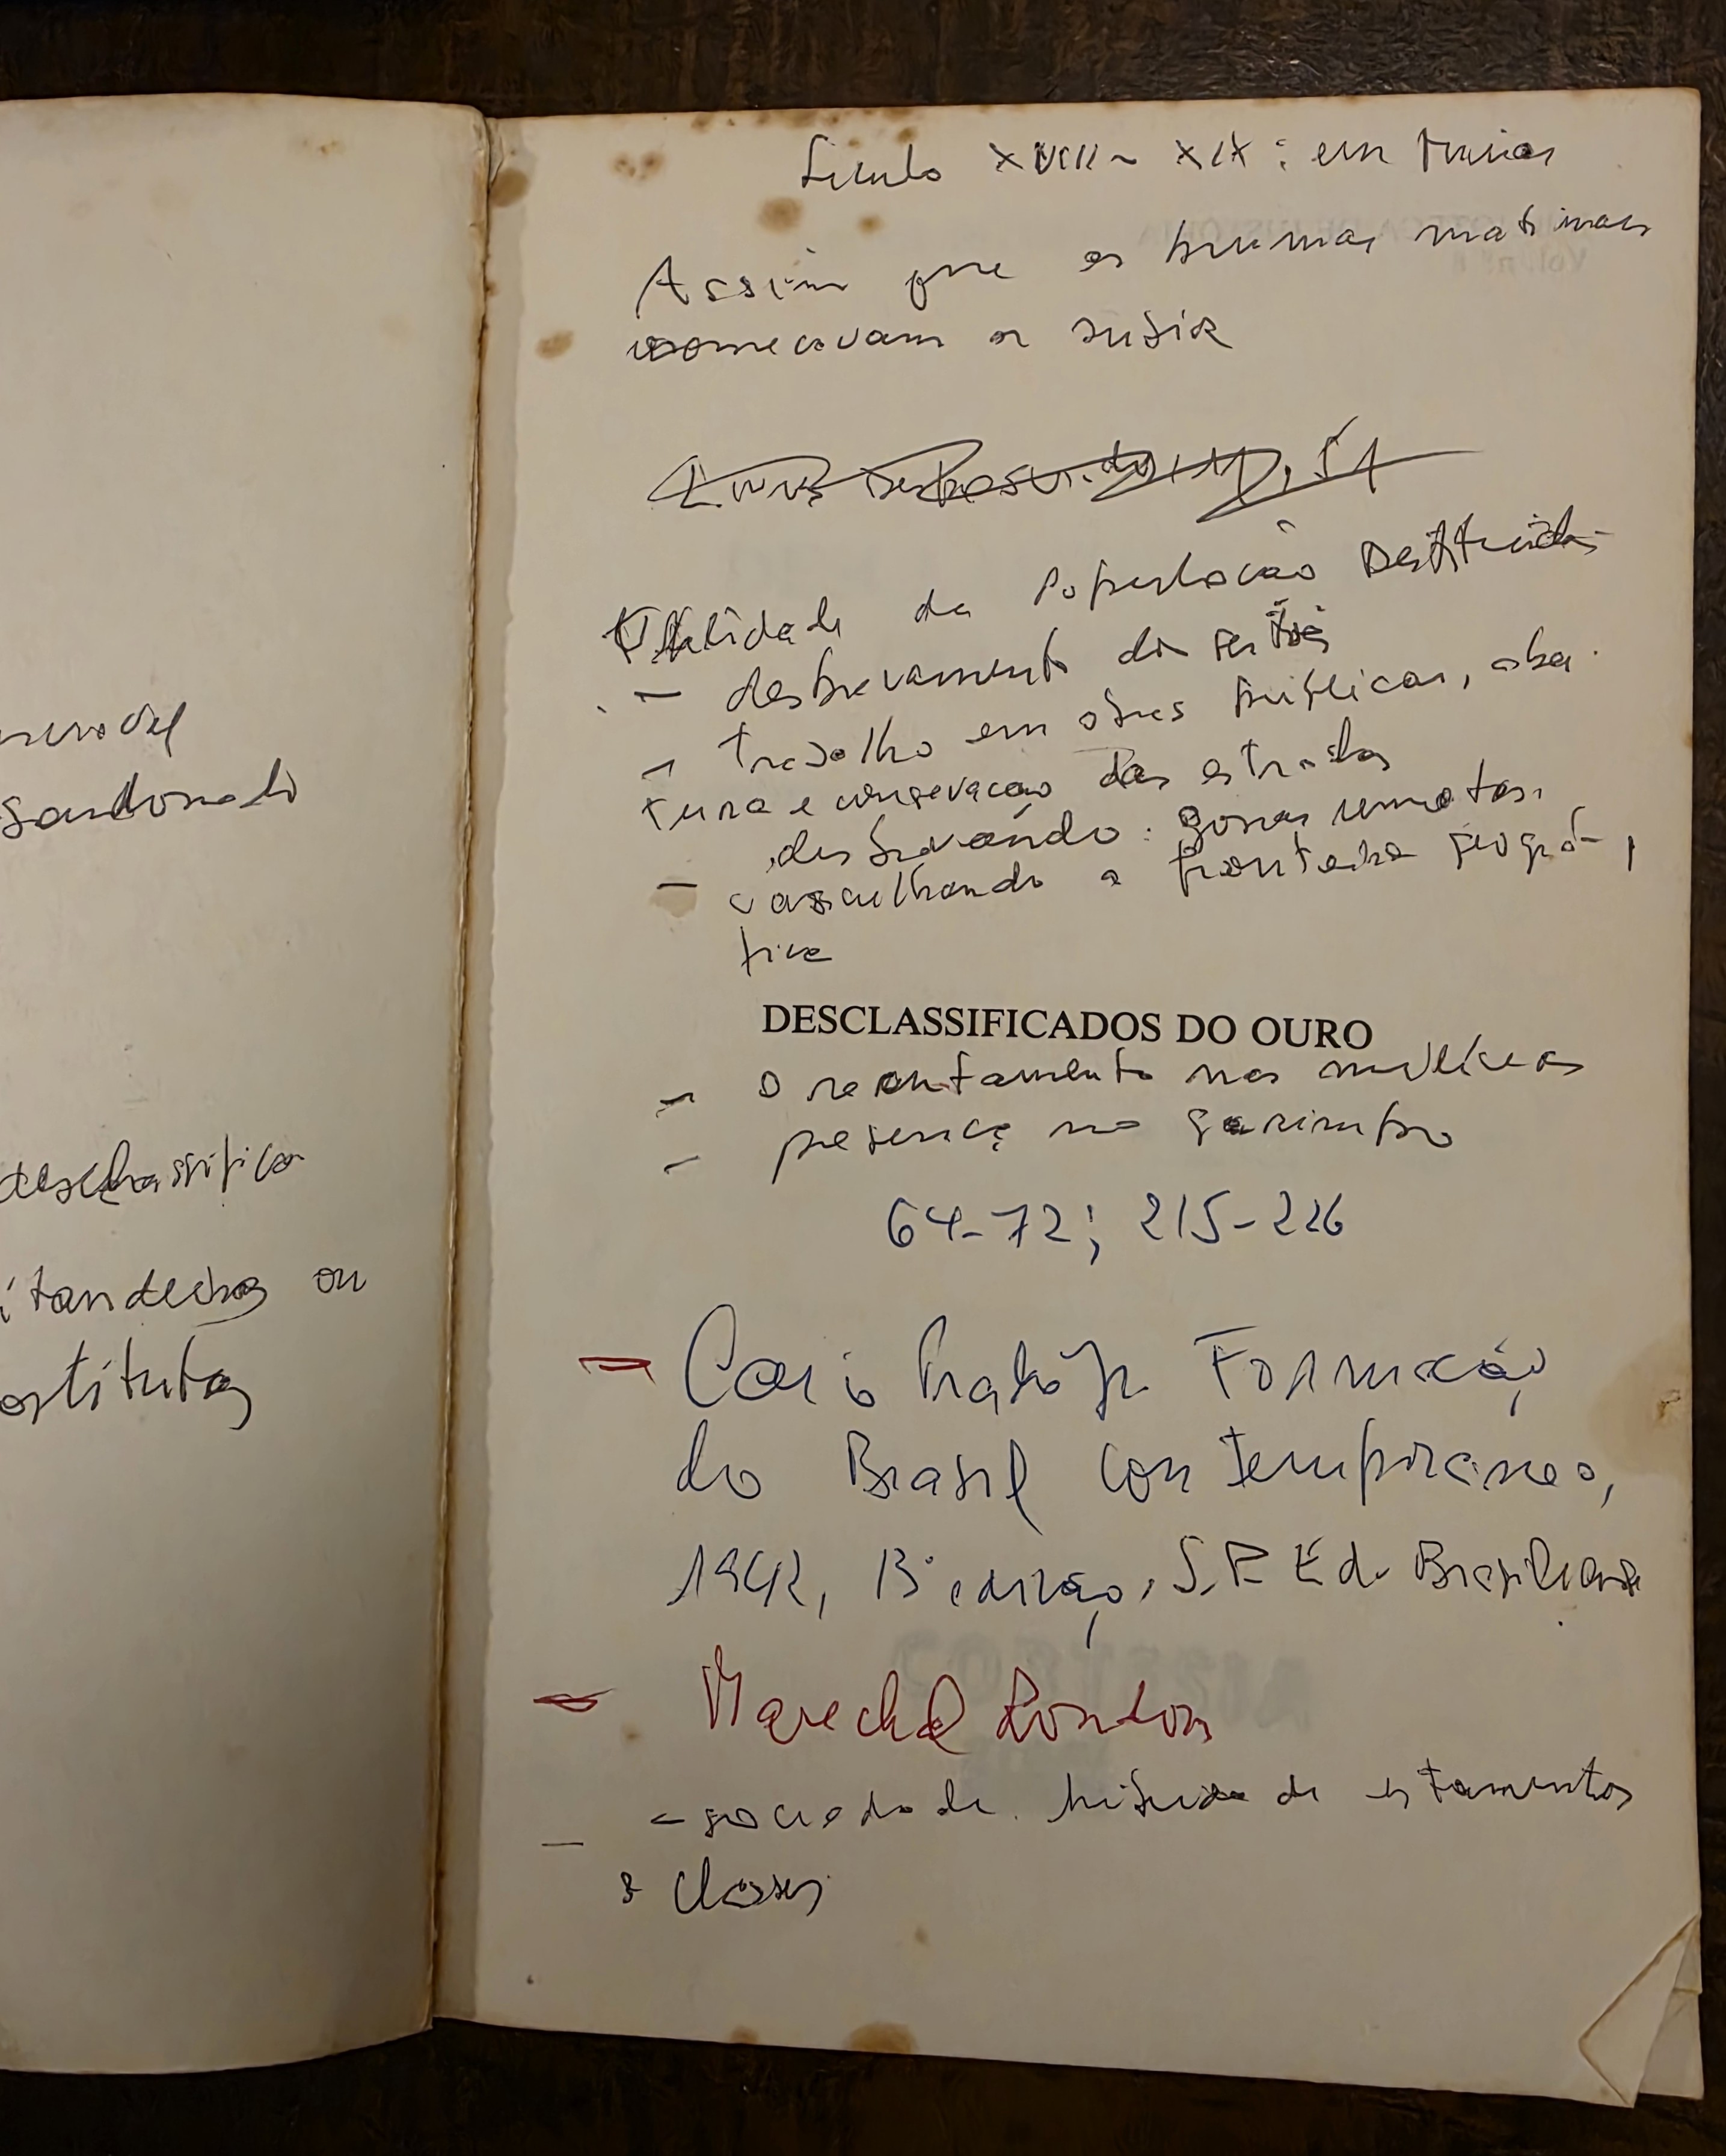 nerável
sandonado
desclassifica
itandeiras ou
ostitutas
Século XVIII ~ XIX: em Minas
Assim que as brumas matinais
começavam a subir
Utilidade da População Destituída
- desbravamento do sertão
- trabalho em obras públicas, aber
tura e conservação das estradas
desbravando: zonas remotas,
- vasculhando a fronteira geográ-
fica
DESCLASSIFICADOS DO OURO
- o recrutamento nas milícias
- presença no garimpo
64-72; 215-226
- Caio Prado Jr. Formação
do Brasil Contemporâneo,
1942, 13ª edição, S.P. Ed. Brasiliense
- Marechal Rondon
- sociedade híbrida de estamentos
e classes